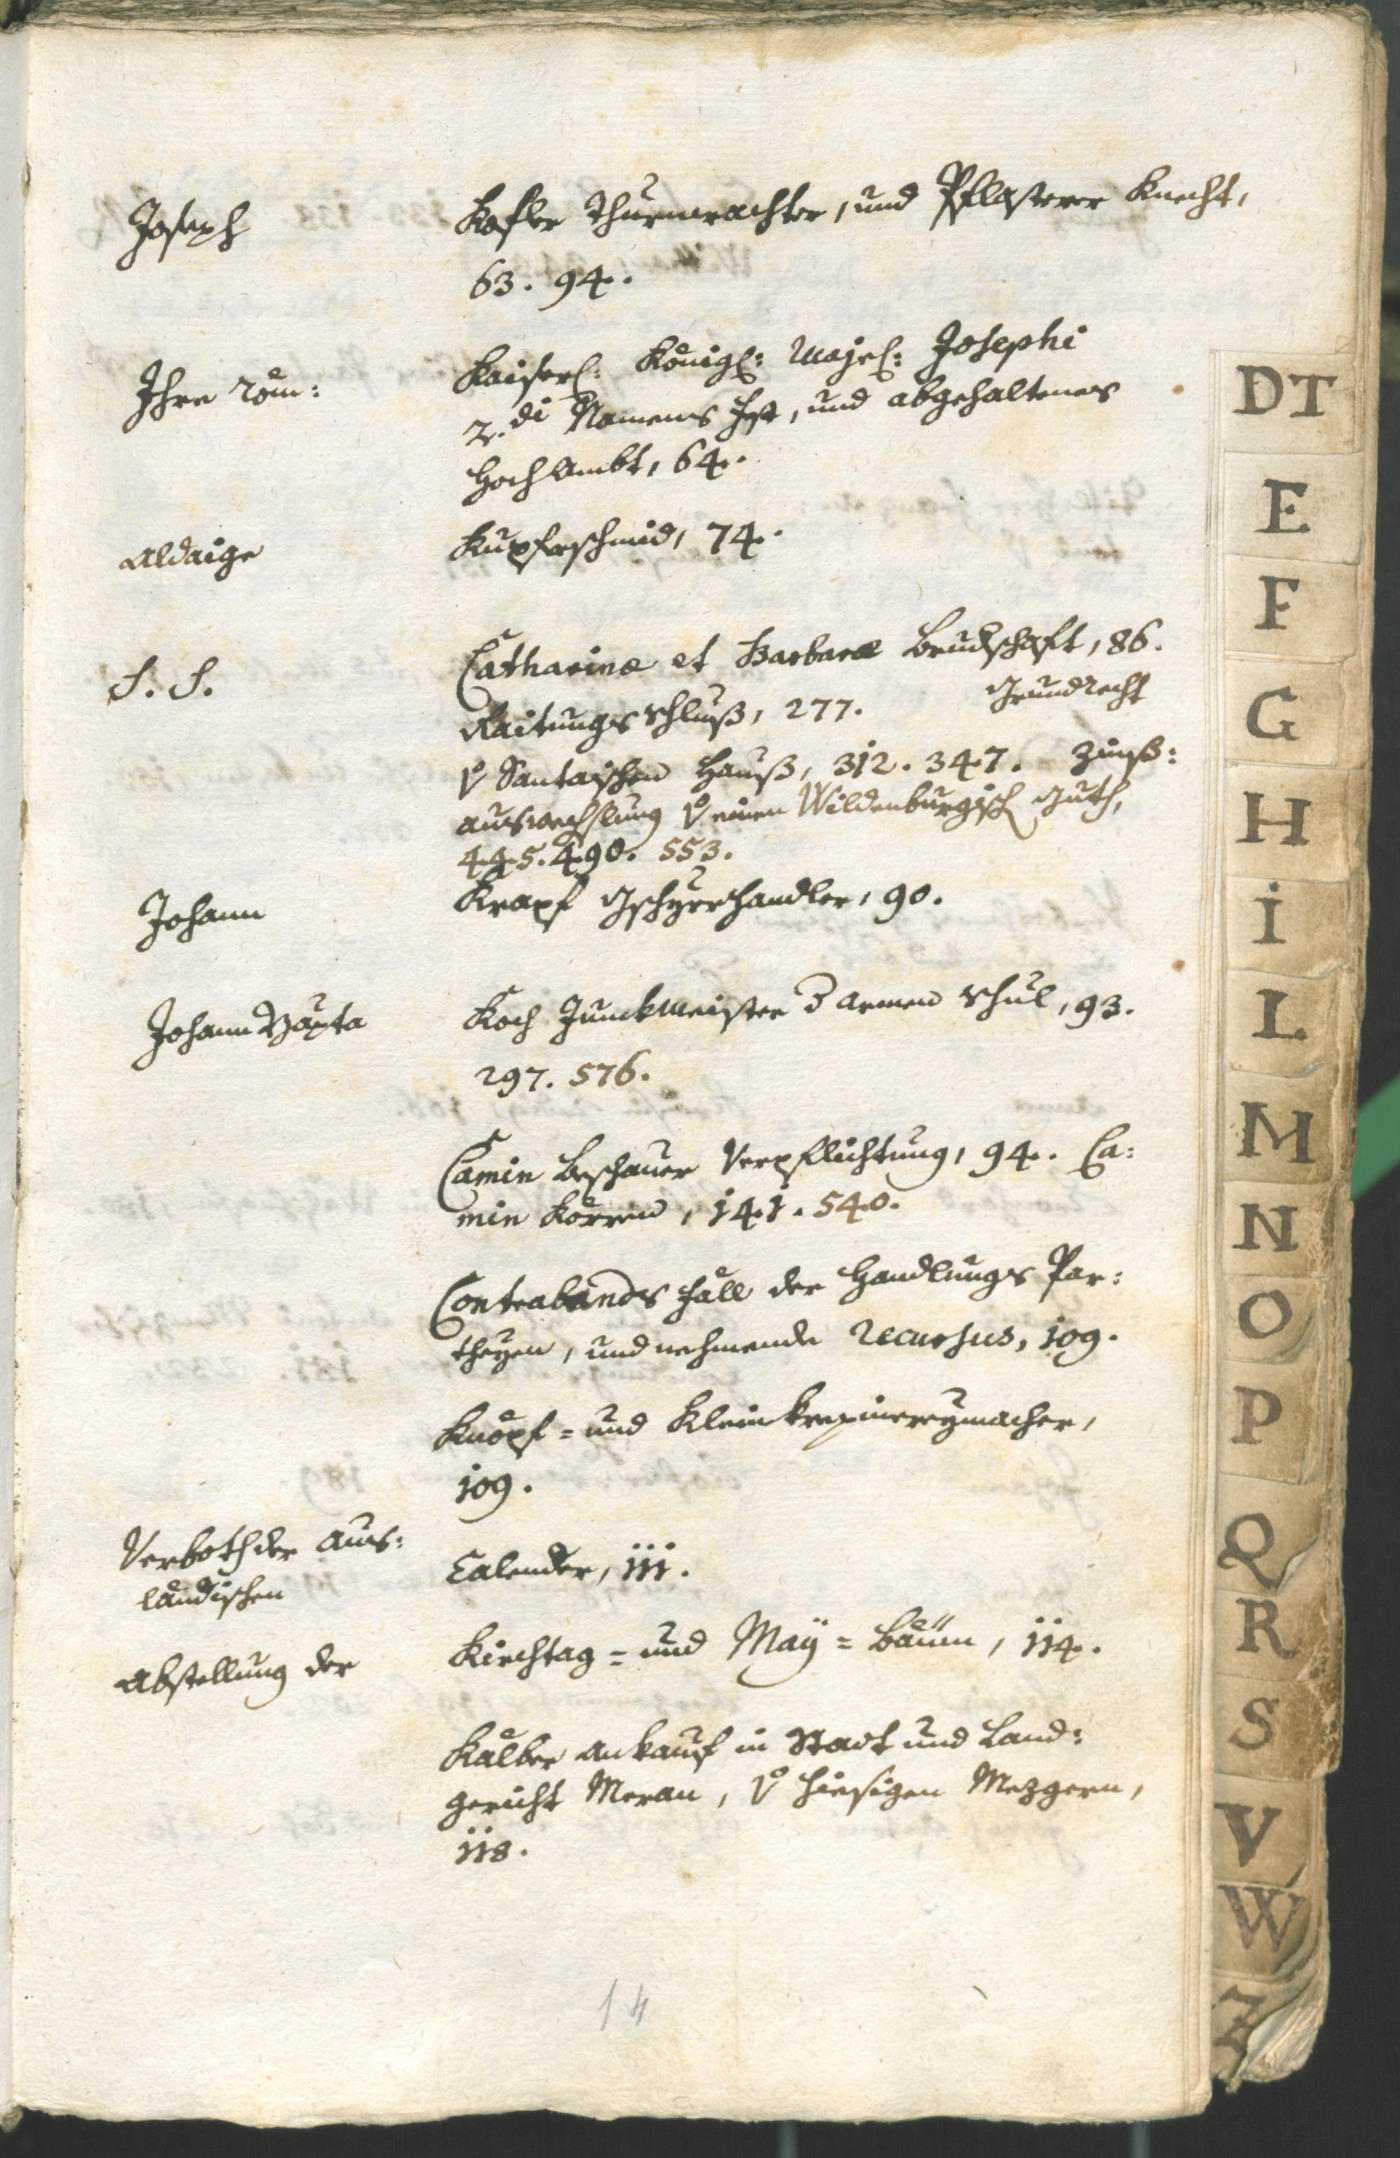 Joseph Kofler Thurnwachter, und Pflasterer Knecht,
63. 94.
Ihre röm: Kaiserl: Königl: Majes: Josephi
2.di Namens Fest, und abgehaltenes
Hoch Ambt, 64.
Aldaige Kupferschmid, 74.
S. S. Catharinæ et Barbaræ Brudschaft, 86.
Raitungs Schluß, 277. Grundrecht
v Santaischen Hauß, 312. 347. Zinß:
auswechslung v einen Wildenburgisch Guth,
445. 490. 553.
Johann Krapf Gschyrrhandler, 90.
Johann Bapta Koch Junckmeister d armen Schul, 93.
297. 576.
Camin Beschauer Verpflichtung, 94. Ca:
min Körren, 141. 540.
Contrabands Fäll der Handlungs Par:
theyen, und nehmende Recursus, 109.
Knöpf= und Kleinkrepinereymacher,
109.
Verboth der aus:
ländischen Calender, 111.
Abstellung der Kirchtag= und May= Bäüm, 114.
Kälber ankauf in Stadt und Land:
gericht Meran, v hiesigen Mezgern,
118.
14
DT
E
F
G
H
I
L
M
N
O
P
Q
R
S
V
W
Z